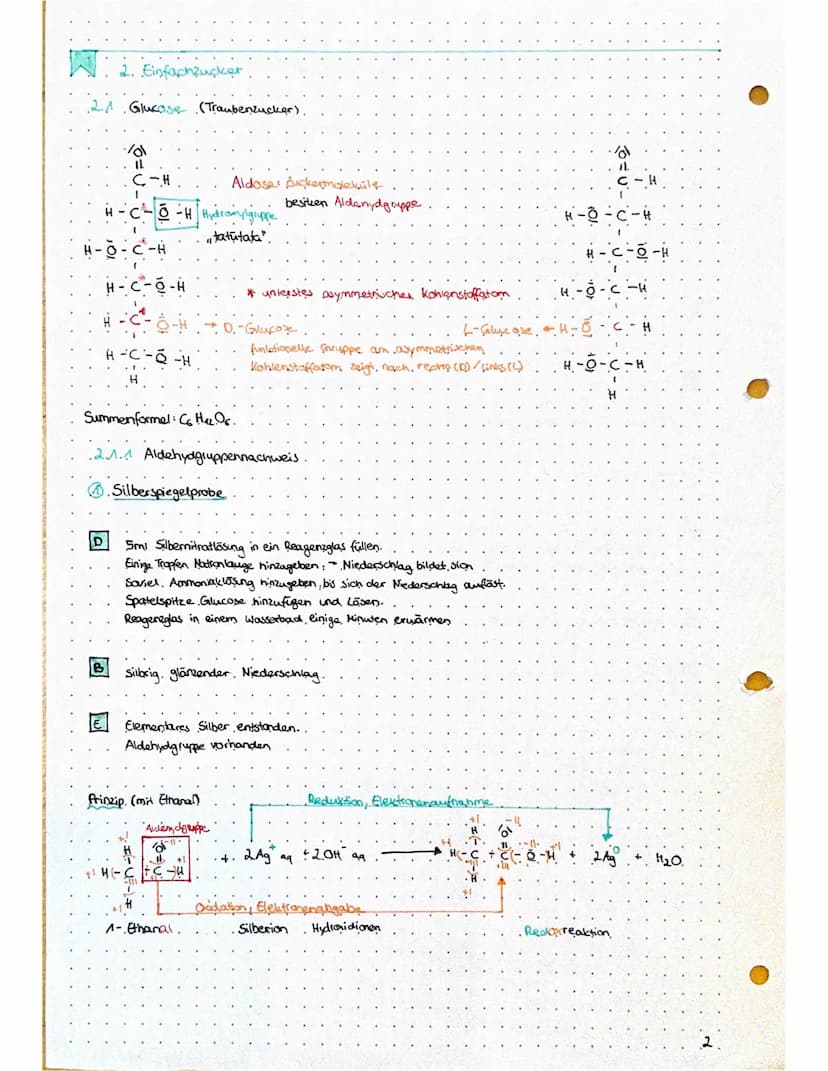 2. Einfachzucker
2.1 Glucose (Traubenzucker)
|O|
||
C-H
H-C*-O-H Hydroxylgruppe
HO-C*-H
H-C*-O-H
H-C*-O-H → D-Glucose
H-C-O-H
H
Aldose: Zuckermoleküle
besitzen Aldehydgruppe
„tatütata"
* unterstes asymmetrisches Kohlenstoffatom
funktionelle Gruppe am asymmetrischen
Kohlenstoffatom zeigt nach rechts (D) / links (L)
|O|
||
C-H
H-O-C-H
H-C-O-H
H-O-C-H
L-Glucose ← H-O-C-H
H-O-C-H
H
Summenformel: C6 H12 O6
2.1.1 Aldehydgruppennachweis
① Silberspiegelprobe
D 5ml Silbernitratlösung in ein Reagenzglas füllen.
Einige Tropfen Natronlauge hinzugeben: → Niederschlag bildet sich
Soviel Ammoniaklösung hinzugeben, bis sich der Niederschlag auflöst.
Spatelspitze Glucose hinzufügen und Lösen.
Reagenzglas in einem Wasserbad einige Minuten erwärmen
B silbrig glänzender Niederschlag.
E Elementares Silber entstanden.
Aldehydgruppe vorhanden
Prinzip (mit Ethanal)
Reduktion, Elektronenaufnahme
Aldehydgruppe
+ 2Ag+ aq + 2OH- aq → + 2Ag0 + H2O
Oxidation, Elektronenabgabe
1-Ethanal Silberion Hydroxidionen Redoxreaktion
2